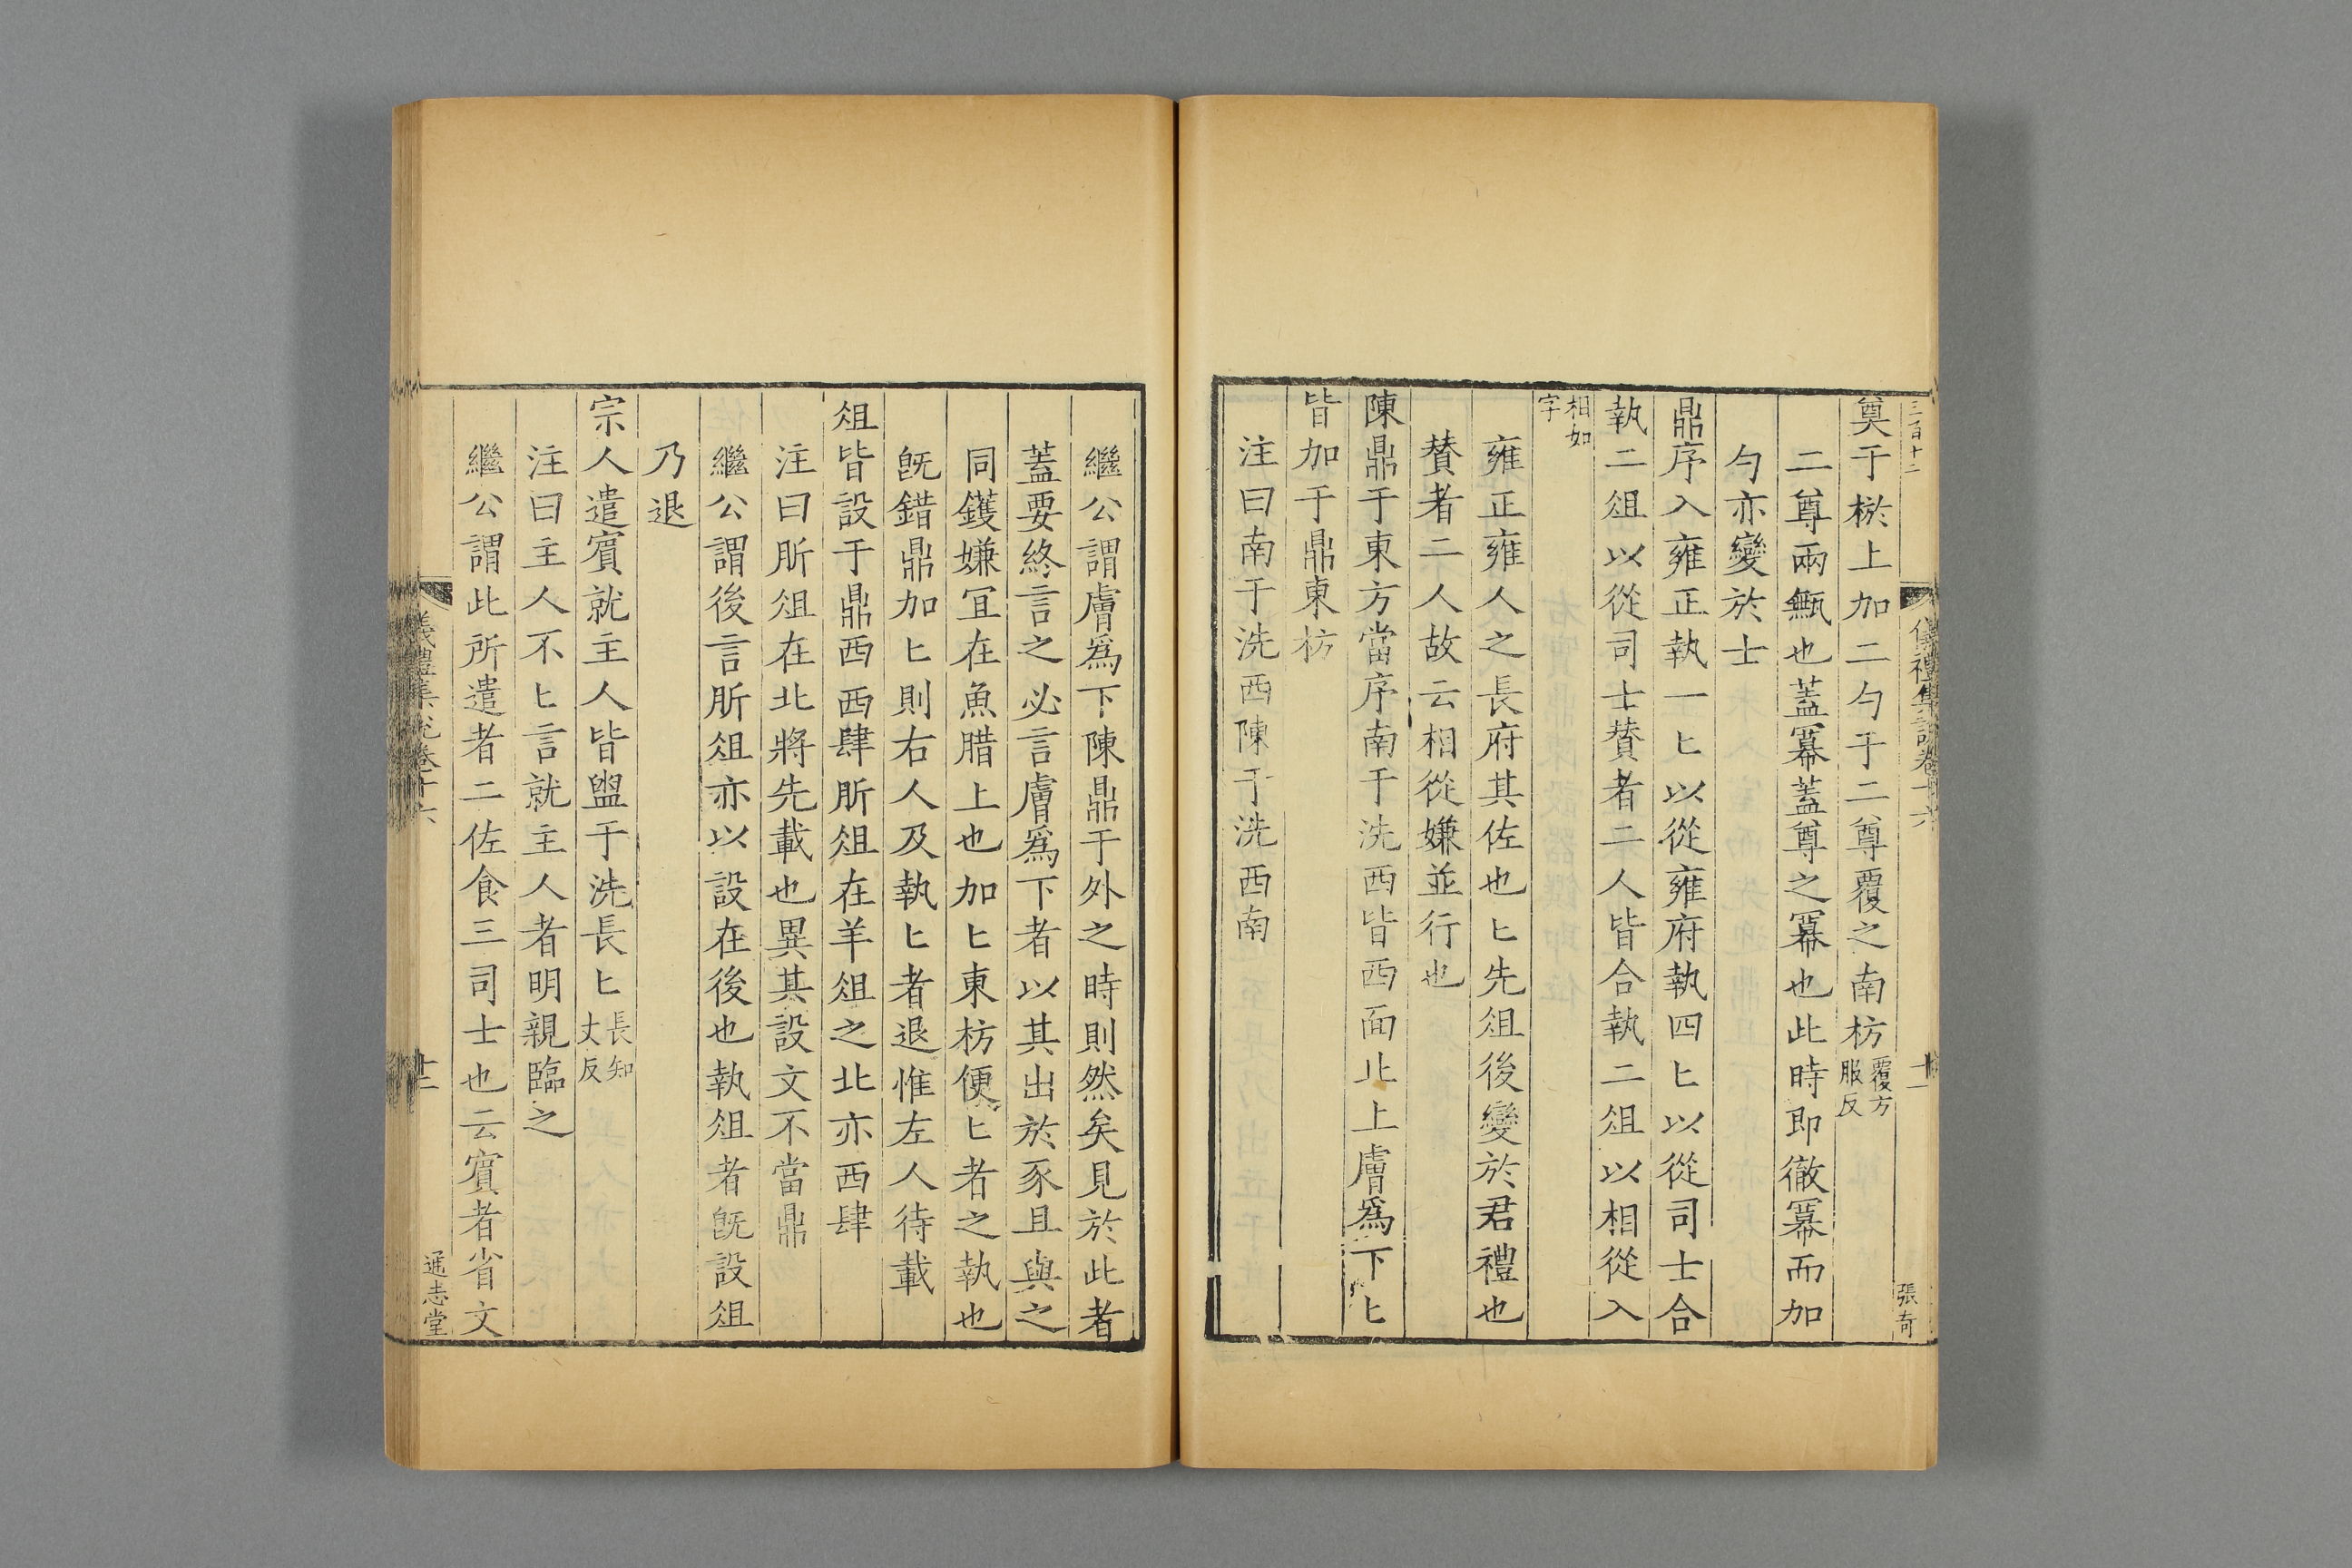 三百十二
儀禮集說卷十六
十一
張奇
奠于棜上加二勺于二尊覆之南枋覆方服反
二尊兩甒也蓋冪蓋尊之冪也此時即徹冪而加
勺亦變於士
鼎序入雍正執一匕以從雍府執四匕以從司士合
執二俎以從司士贊者二人皆合執二俎以相從入
相如字
雍正雍人之長府其佐也匕先俎後變於君禮也
贊者二人故云相從嫌並行也
陳鼎于東方當序南于洗西皆西面北上膚爲下匕
皆加于鼎東枋
注曰南于洗西陳于洗西南
繼公謂膚爲下陳鼎于外之時則然矣見於此者
蓋要終言之必言膚爲下者以其出於豕且與之
同鑊嫌宜在魚腊上也加匕東枋便匕者之執也
旣錯鼎加匕則右人及執匕者退惟左人待載
俎皆設于鼎西西肆肵俎在羊俎之北亦西肆
注曰肵俎在北將先載也異其設文不當鼎
繼公謂後言肵俎亦以設在後也執俎者旣設俎
乃退
宗人遣賓就主人皆盥于洗長匕長知丈反
注曰主人不匕言就主人者明親臨之
繼公謂此所遣者二佐食三司士也云賓者省文
儀禮集說卷十六
十二
通志堂